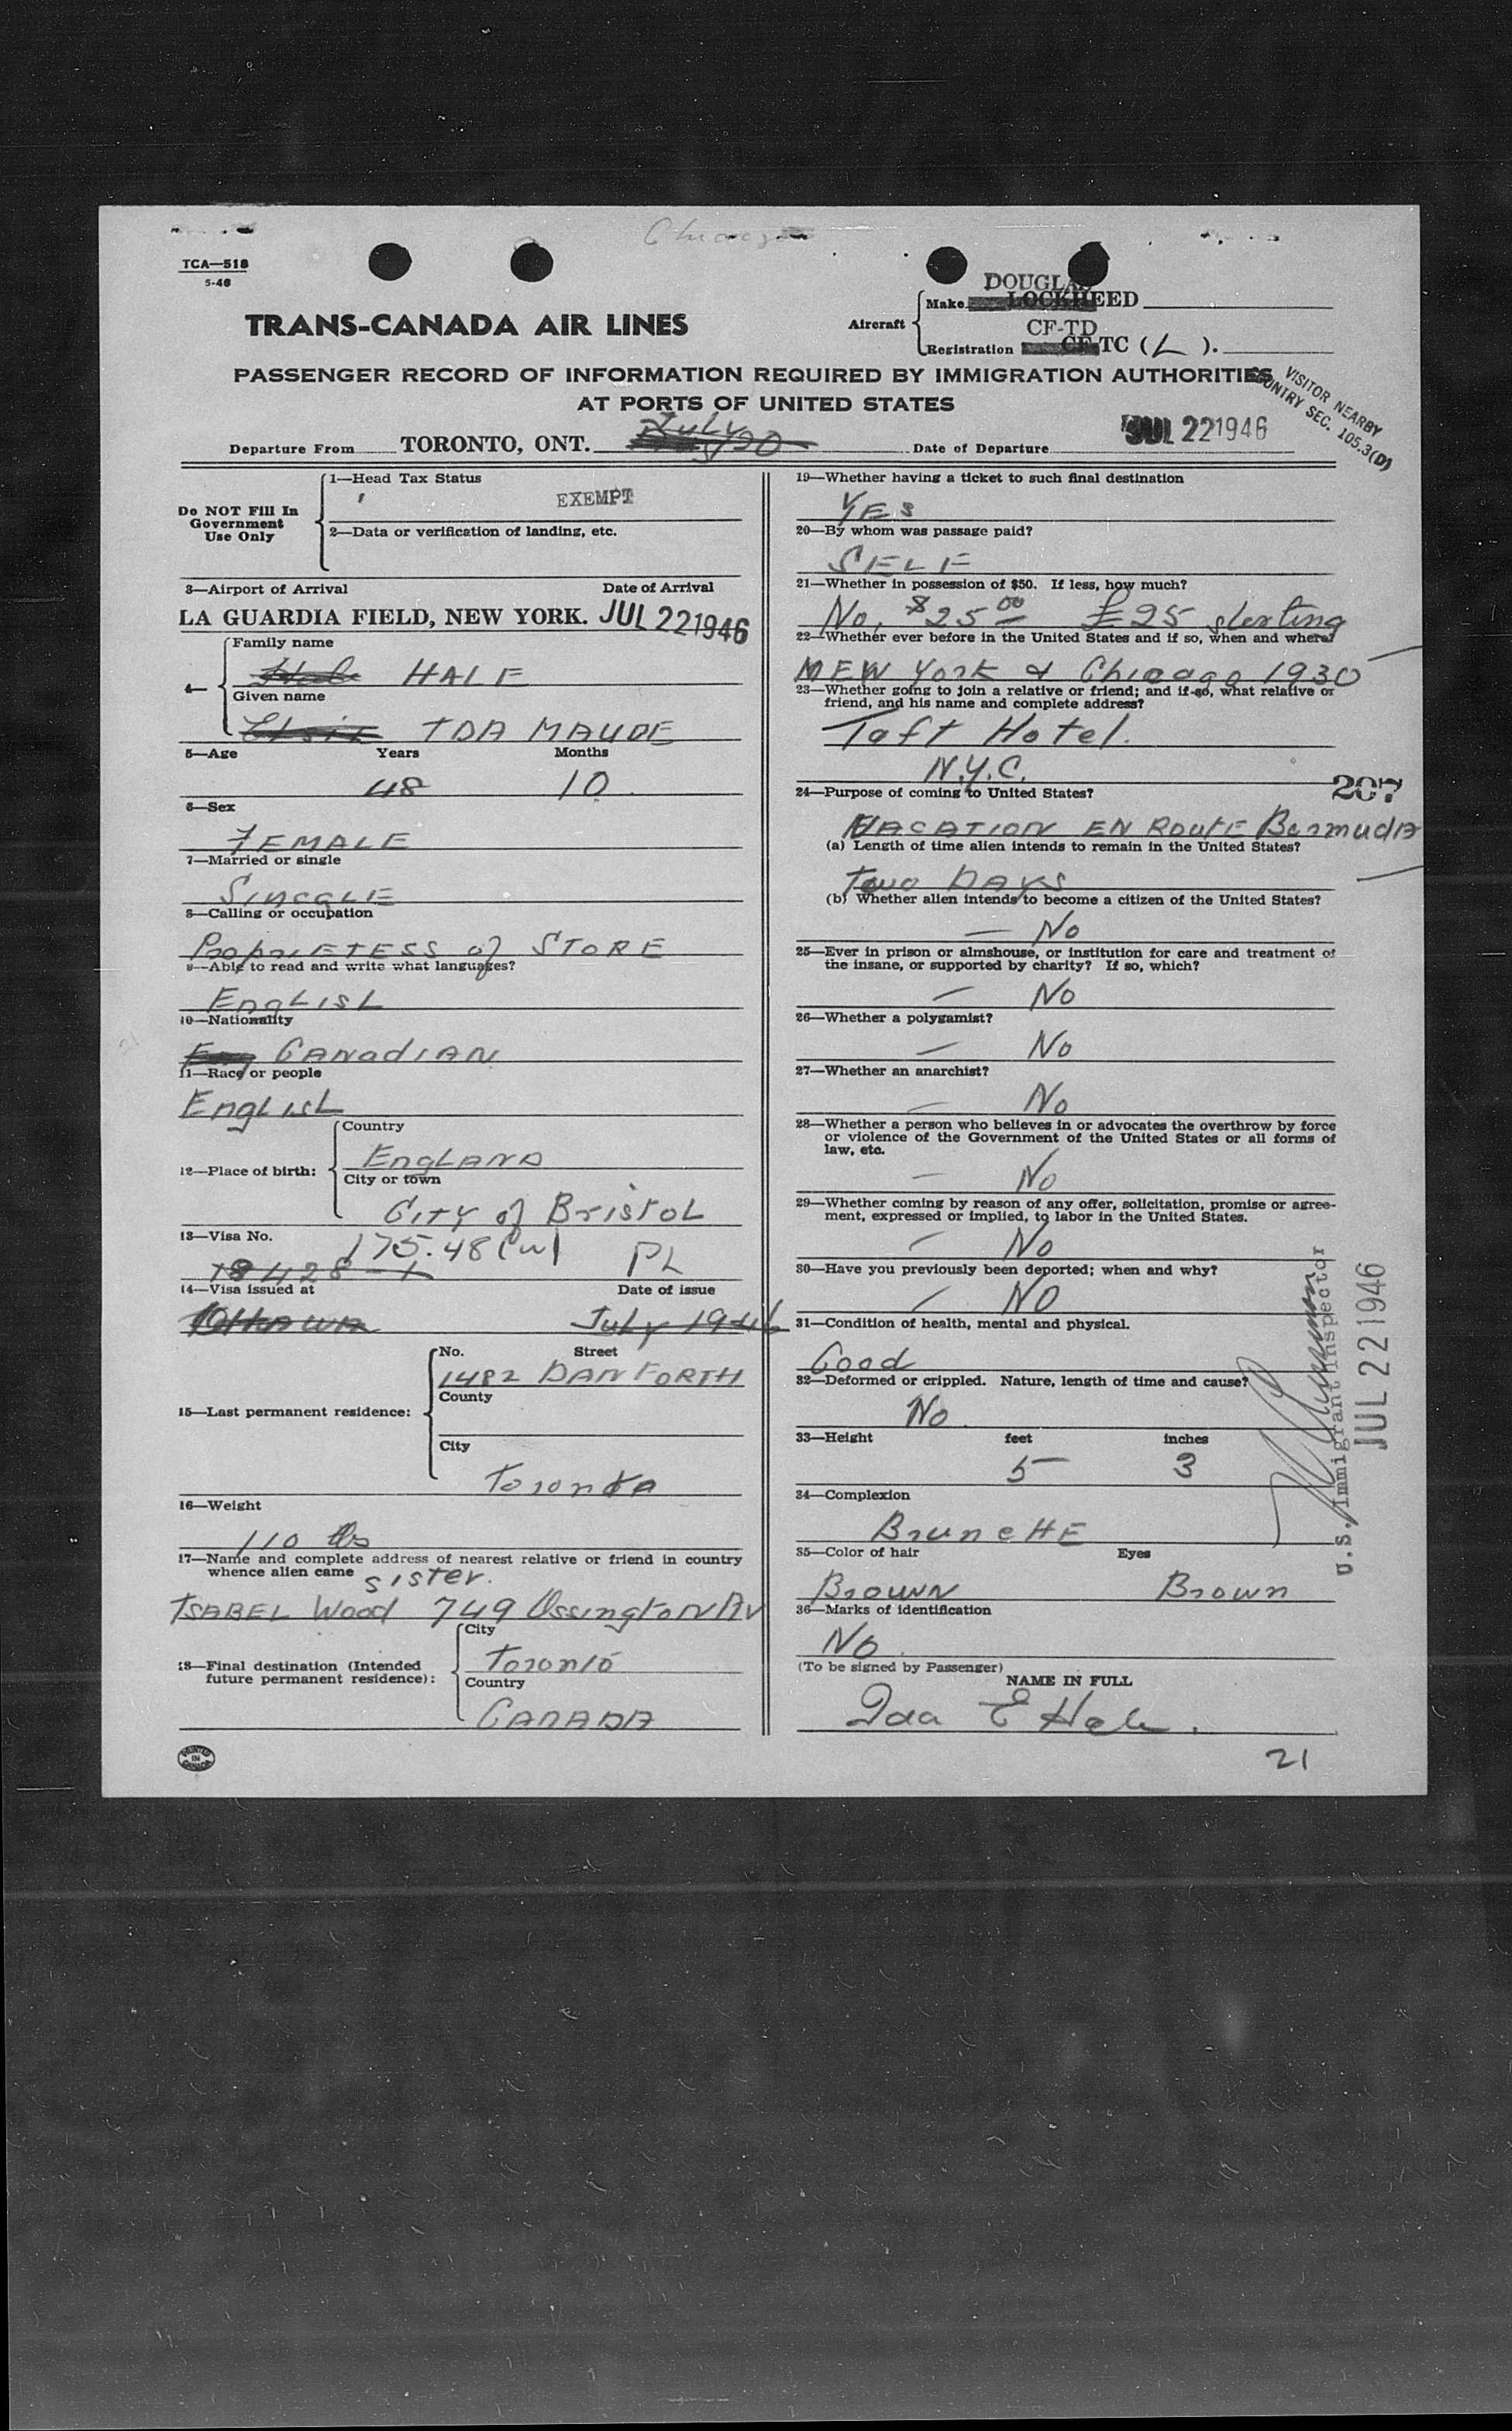 TCA—518
5-46
TRANS-CANADA AIR LINES
Aircraft
DOUGLAS
Make LOCKHEED
CF-TD
Registration CF-TC (L).
PASSENGER RECORD OF INFORMATION REQUIRED BY IMMIGRATION AUTHORITIES
AT PORTS OF UNITED STATES
VISITOR NEARBY
COUNTRY SEC. 105.3(D)
July
Departure From TORONTO, ONT. Date of Departure JUL 22 1946
Do NOT Fill In
Government
Use Only
1—Head Tax Status
EXEMPT
2—Data or verification of landing, etc.
3—Airport of Arrival Date of Arrival
LA GUARDIA FIELD, NEW YORK. JUL 22 1946
4—
Family name
Hale HALE
Given name
IDA MAUDE
5—Age Years Months
48 10
6—Sex
FEMALE
7—Married or single
SINGGLE
8—Calling or occupation
PROPRIETESS of STORE
9—Able to read and write what languages?
ENGLISh
10—Nationality
Eng CANAdIAN
11—Race or people
ENGLISh
12—Place of birth:
Country
ENGLAND
City or town
CITY of BRISTOL
13—Visa No.
175.48 (w) PL
18428-1
14—Visa issued at Date of issue
Ottawa July 1946
15—Last permanent residence:
No. Street
1482 DANFORTH
County
City
Toronto
16—Weight
110 lbs
17—Name and complete address of nearest relative or friend in country
whence alien came
sister.
ISABEL Wood 749 OssingtoN Av
18—Final destination (Intended
future permanent residence):
City
Toronto
Country
CANADA
PRINTED
IN
CANADA
19—Whether having a ticket to such final destination
YES
20—By whom was passage paid?
SELF
21—Whether in possession of $50. If less, how much?
No, $25.00 £25 sterling
22—Whether ever before in the United States and if so, when and where?
NEW York & Chicago 1930
23—Whether going to join a relative or friend; and if so, what relative or
friend, and his name and complete address?
Taft Hotel.
N.Y.C.
207
24—Purpose of coming to United States?
VACATION EN ROUTE BermudA
(a) Length of time alien intends to remain in the United States?
Two DAYS
(b) Whether alien intends to become a citizen of the United States?
— No
25—Ever in prison or almshouse, or institution for care and treatment of
the insane, or supported by charity? If so, which?
— No
26—Whether a polygamist?
— No
27—Whether an anarchist?
— No
28—Whether a person who believes in or advocates the overthrow by force
or violence of the Government of the United States or all forms of
law, etc.
— No
29—Whether coming by reason of any offer, solicitation, promise or agree-
ment, expressed or implied, to labor in the United States.
— No
30—Have you previously been deported; when and why?
— NO
31—Condition of health, mental and physical.
Good
32—Deformed or crippled. Nature, length of time and cause?
No.
33—Height feet inches
5 3
34—Complexion
BRUNETTE
35—Color of hair Eyes
BROWN BROWN
36—Marks of identification
No.
(To be signed by Passenger)
NAME IN FULL
Ida E Hale.
21
U.S. Immigrant Inspector
JUL 22 1946